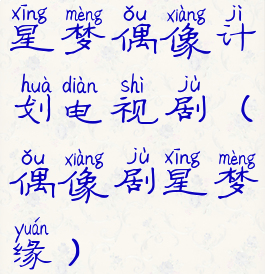 xīng mèng ǒu xiàng jì
星梦偶像计
huà diàn shì jù
划电视剧（
ǒu xiàng jù xīng mèng
偶像剧星梦
yuán
缘）